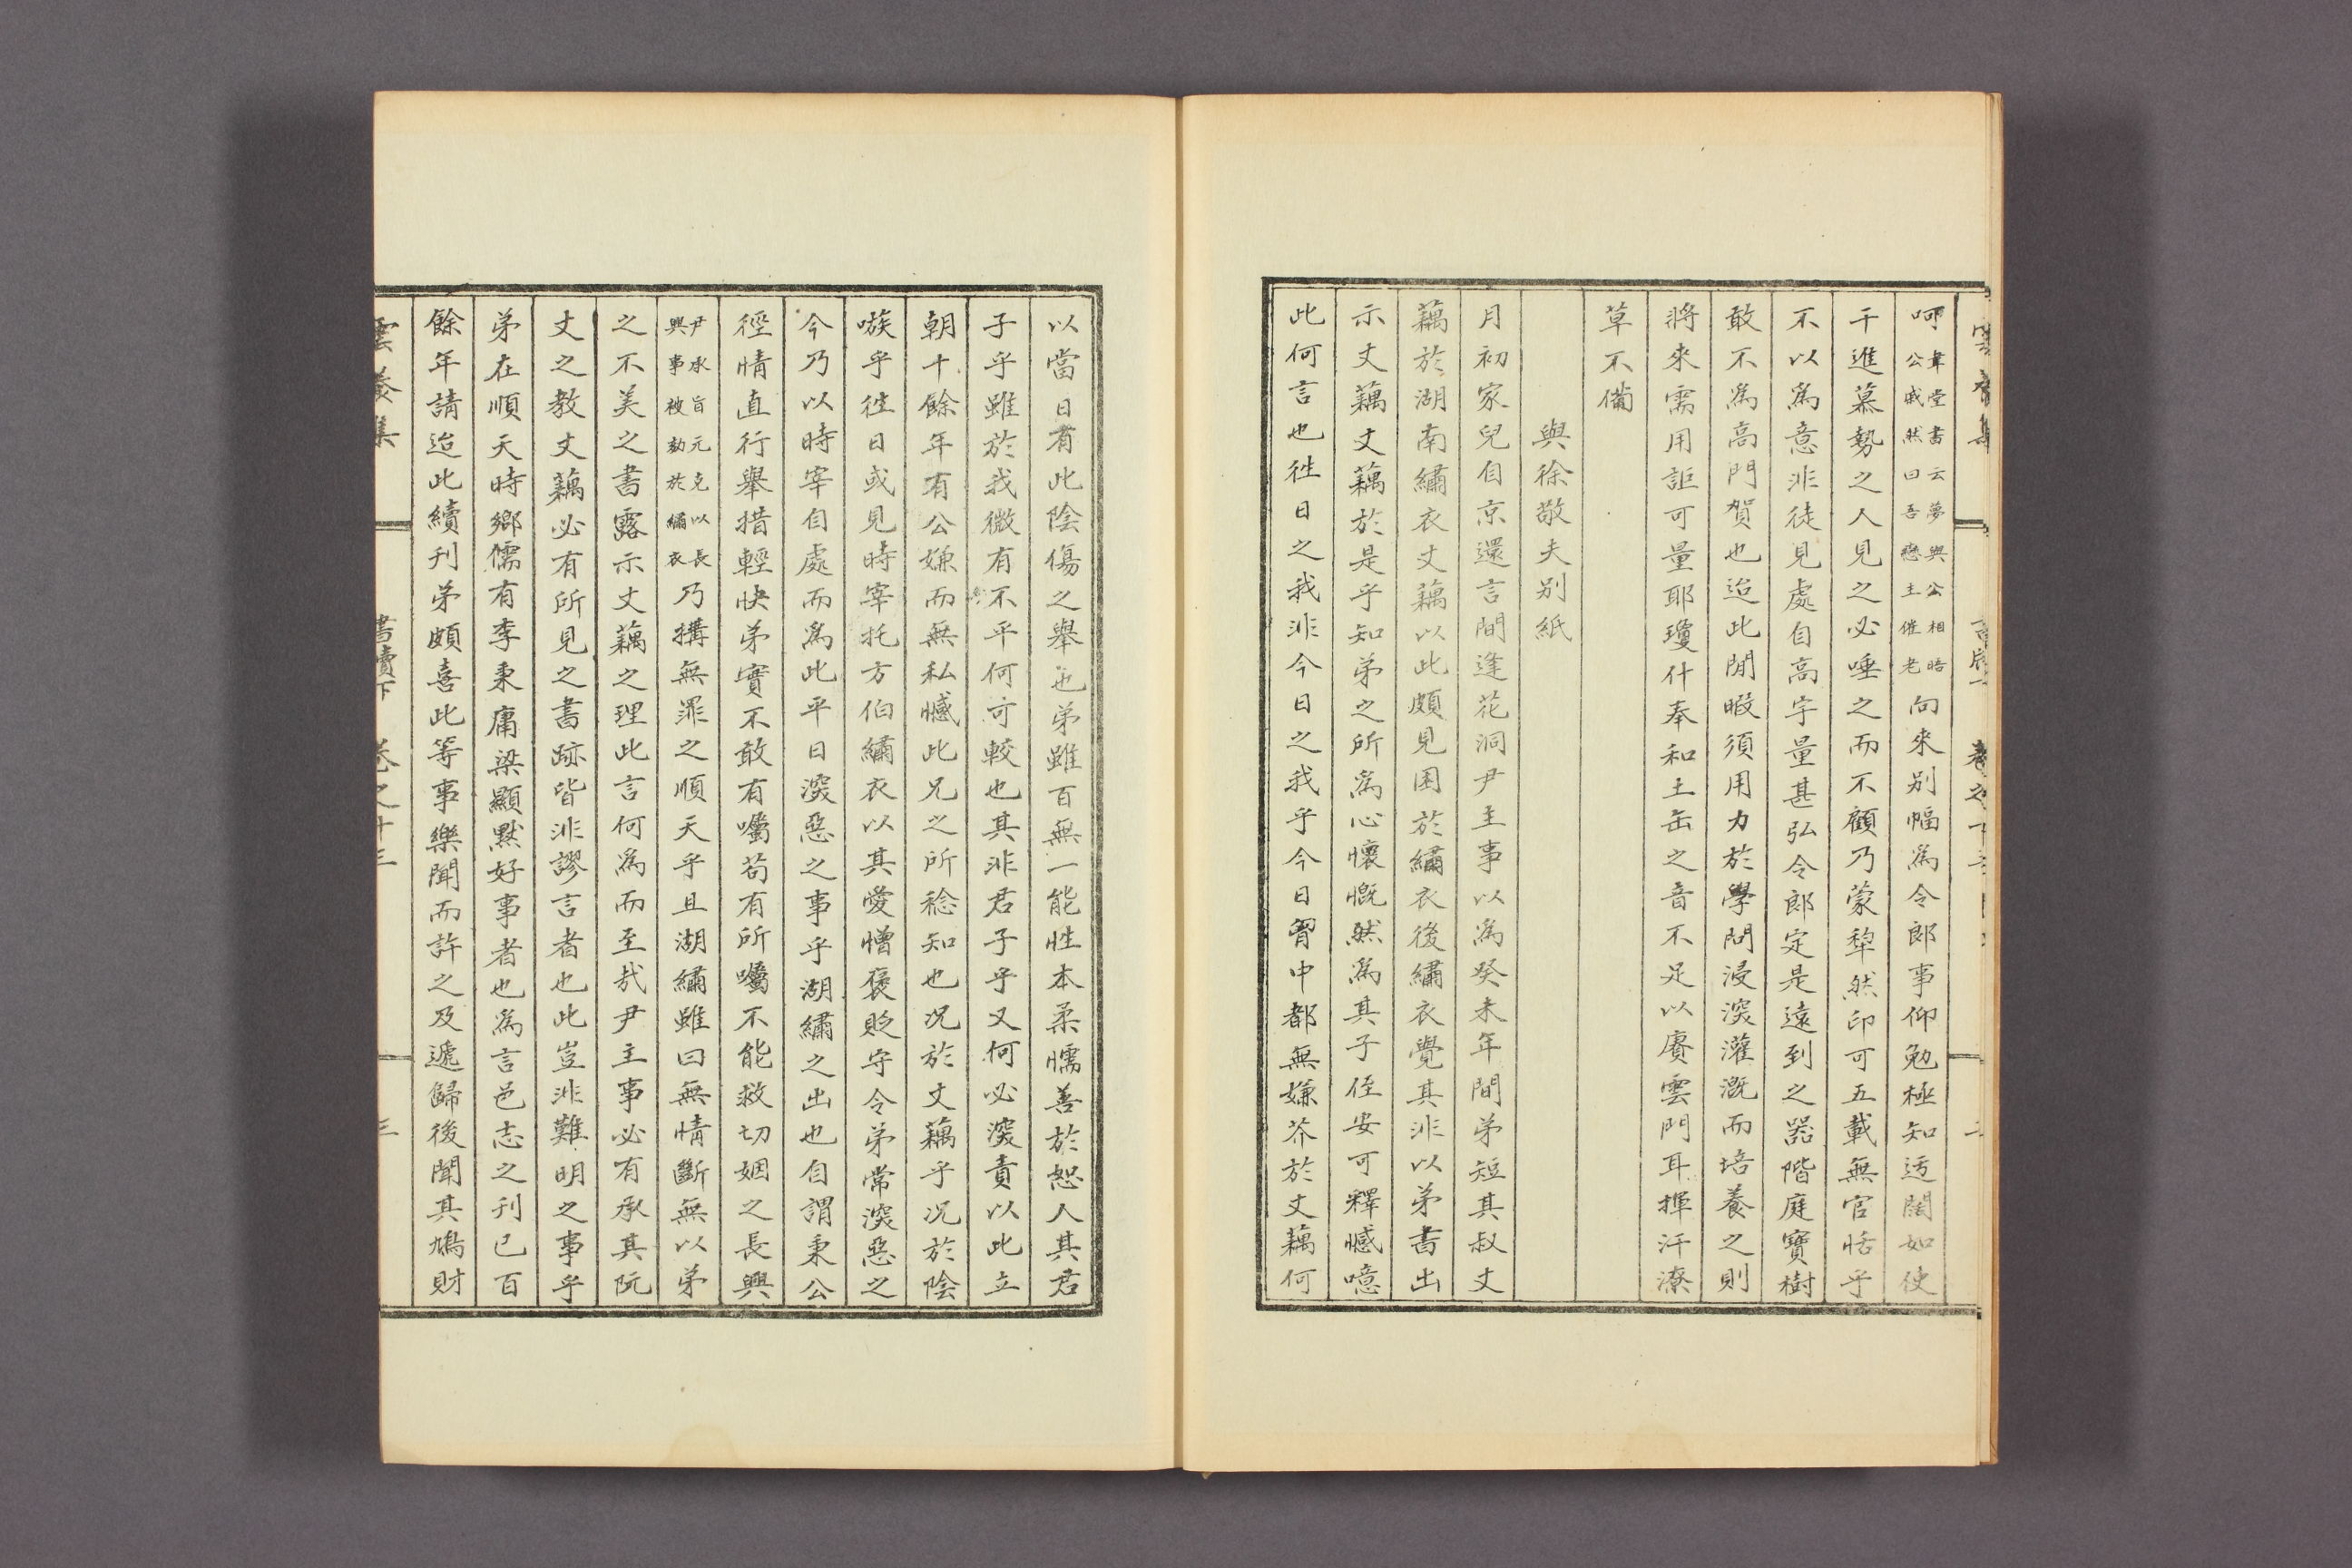 呵韋堂書云夢與公相晤公戚然曰吾戀主催老向來別幅爲令郎事仰勉極知迃闊如使
干進慕勢之人見之必唾之而不顧乃蒙犁然印可五載無官恬乎
不以爲意非徒見處自高宇量甚弘令郎定是遠到之器階庭寶樹
敢不爲高門賀也迨此閒暇須用力於學問浸深灌漑而培養之則
將來需用詎可量耶瓊什奉和土缶之音不足以賡雲門耳揮汗潦
草不備
與徐敬夫別紙
月初家兒自京還言間逢花洞尹主事以爲癸未年間弟短其叔丈
藕於湖南繡衣丈藕以此頗見困於繡衣後繡衣覺其非以弟書出
示丈藕丈藕於是乎知弟之所爲心懷慨然爲其子侄安可釋憾噫
此何言也徃日之我非今日之我乎今日胷中都無嫌芥於丈藕何
以當日有此陰傷之舉也弟雖百無一能性本柔懦善於恕人其君
子乎雖於我微有不平何可較也其非君子乎又何必深責以此立
朝十餘年有公嫌而無私憾此兄之所稔知也况於丈藕乎况於陰
嗾乎徃日或見時宰托方伯繡衣以其愛憎褒貶守令弟常深惡之
今乃以時宰自處而爲此平日深惡之事乎湖繡之出也自謂秉公
徑情直行舉措輕快弟實不敢有囑苟有所囑不能救切姻之長興
尹承旨元克以長興事被劾於繡衣乃搆無罪之順天乎且湖繡雖曰無情斷無以弟
之不美之書露示丈藕之理此言何爲而至哉尹主事必有承其阮
丈之敎丈藕必有所見之書跡皆非謬言者也此豈非難明之事乎
弟在順天時鄕儒有李秉庸梁顯默好事者也爲言邑志之刊已百
餘年請迨此續刊弟頗喜此等事樂聞而許之及遞歸後聞其鳩財
雲養集 書牘下 卷之十三 三